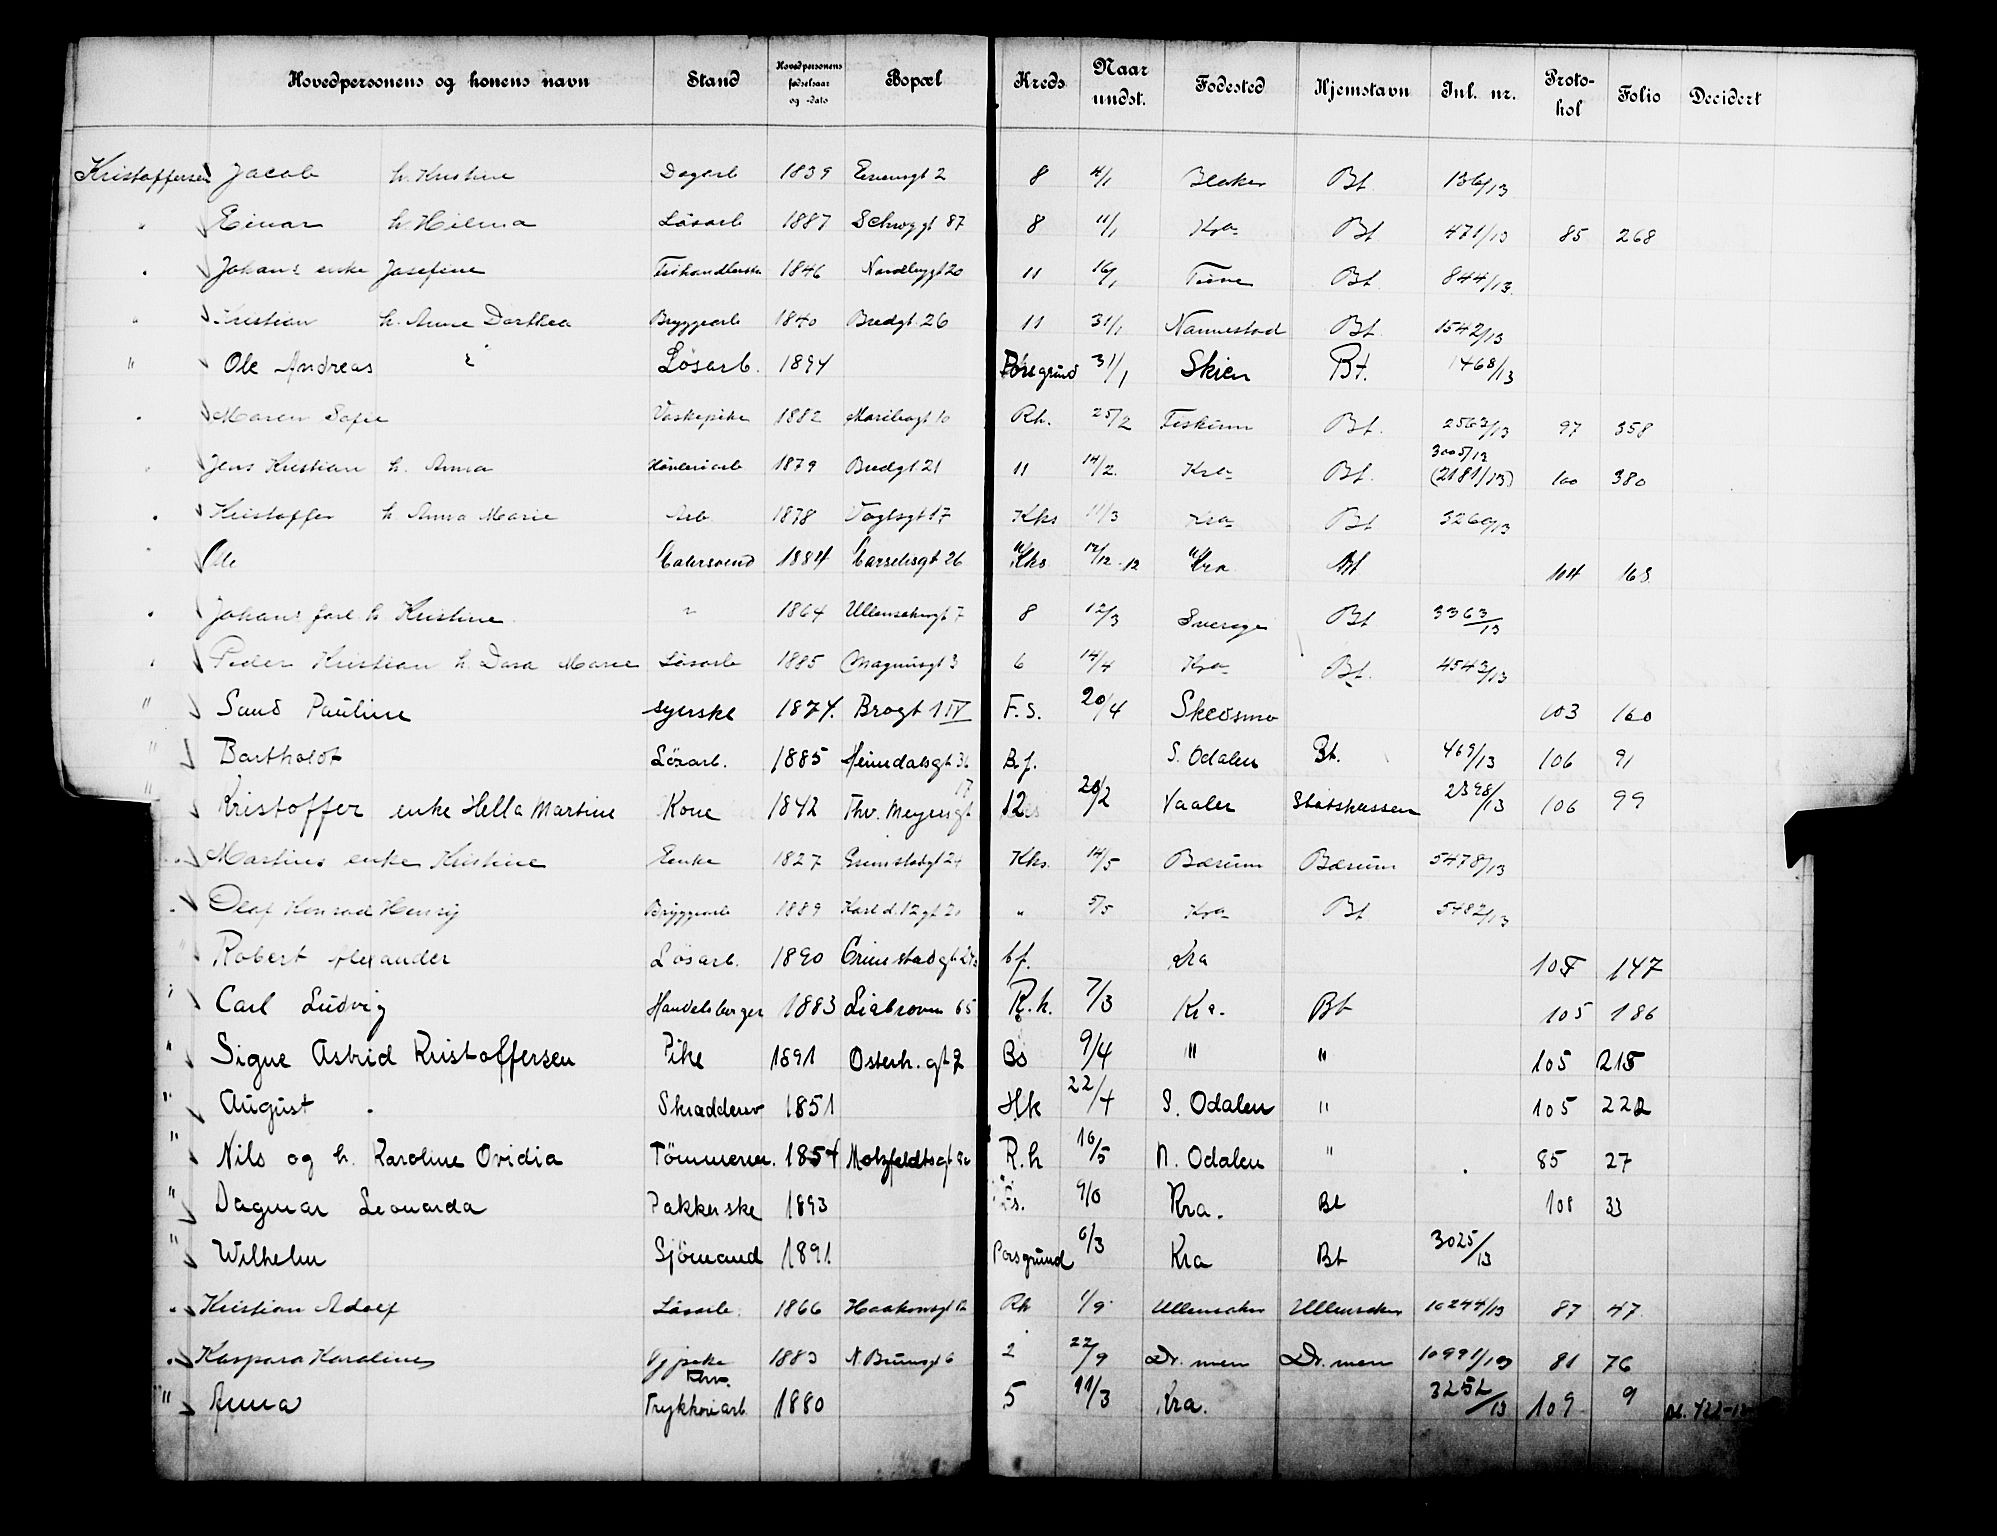 Hovedpersonens og konens navn Stand Hovedpersonens fødselsaar og -dato Bopæl Kreds Naar undst. Fødested Hjemstavn Inl. nr. Proto-kol Folio Decidert
Kristoffersen Jacob h. Kristine Dagarb 1839 2 8 4/1 Blaker Bt. 136/13
" Einar h. Hilma Løsarb 1887 Schwggt 87 8 11/1 Kra Bt 471/13 85 268
" Johans enke Josefine Fiskhandlerske 1846 Nordbygt 20 11 16/1 Bt. 844/13
" Kristian h. Anne Dorthea Bryggearb 1840 Bredgt. 26 11 31/1 Nannestad Bt. 1542/13
" Ole Andreas Løsarb. 1894 Porsgrund 31/1 Skien Bt. 1468/13
" Maren Sofie Vaskepike 1882 Maribogt 10 Rh. 25/2 Eeskimm Bt. 2563/13 97 358
" Jens Kristian h. Anna 1879 Bredgt 21 11 14/2 Kra Bt. 3005/13 (2181/13) 100 380
" Kristoffer h. Anna Marie Arb 1878 Vogtsgt 17 Kks 11/3 Kra Bt 3260/13
" Ole Malersvend 1884 26 Kks 12/12 12 Kra Bt 104 163
" Johans h Kristine " 1864 Ullensakergt 7 8 12/3 Sverige Bt 3363/13
" Peder Kristian h. Dora Marie Løsarb 1885 Magnusgt 3 6 14/4 Kra Bt. 4543/13
" Sand Pauline syerske 1874. Brogt 1 IV F. S. 20/4 Skedsmo 103 160
" Bartholdt Løsarb. 1885 Heimdalsgt 36 B.f. S. Odalen Bt. 469/13 106 91
" Kristoffer enke Hella Martine Kone 1842 Thv. Meyersgt 17 12 20/2 Vaaler Statskassen 2398/13 106 99
" Martins enke Kristine Enke 1827 Grimstadgt 24 Kks. 14/5 Bærum Bærum 5478/13
" Olaf Konrad Henrij Bryggearb 1889 Karl d. 12 gt 20 " 5/5 Kra Bt 5482/13
" Robert Alexander Løsarb. 1890 Grimstadgt 24 b f. Kra 105 147
" Carl Ludvig Handelsborger 1883 Liabroven 65 R. h. 7/3 Kra. Bt 105 186
" Signe Astrid Kristoffersen Pike 1891 Osterh. gt 7 Bs 9/4 " " 105 215
" August Skrædderv 1851 Hk 22/4 S. Odalen " 105 222
" Nils og h. Karoline Ovidia Tömmerm. 1854 Motzfeldtsgt R. h 16/5 N. Odalen " 85 27
" Dagmar Leonarda Pakkerske 1893 9/6 Kra. Bt 108 33
" Wilhelm Sjömand 1891 Porsgrund 6/3 Kra Bt 3025/13
" Kristian Adolf Løsarb. 1866 Haakonsgt 12 Rh 1/9 Ullensaker Ullensaker 10244/13 87 47
" Kaspara Karoline 1883 N. Brunsgt 6 2 22/9 Dr. men Dr. men 10991/13 81 76
" Anna Trykkeriarb 1880 5 11/3 Kra. 3252/13 109 9